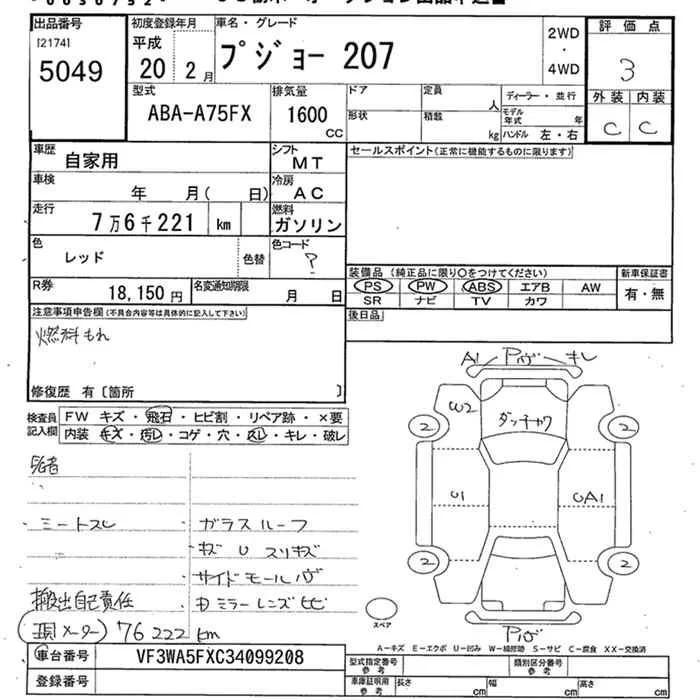 出品番号
[2174]
5049
初度登録年月
平成
20 2月
車名・グレード
プジョー 207
2WD
・
4WD
評価点
3
外装 内装
C C
型式
ABA-A75FX
排気量
1600
CC
ドア
定員
人
形状
積載
kg
ディーラー・並行
モデル年式 年
ハンドル 左・右
車歴
自家用
シフト
MT
車検
年 月( 日)
冷房
AC
走行
7万6千221 km
燃料
ガソリン
色
レッド
色替
色コード
?
R券
18,150円
名変通知期限
月 日
セールスポイント(正常に機能するものに限ります)
装備品 (純正品に限り○をつけてください)
PS PW ABS エアB AW
SR ナビ TV カワ
新車保証書
有・無
後日品
注意事項申告欄(不具合内容等は具体的に記入して下さい)
燃料もれ
修復歴 有〔箇所 〕
検査員記入欄
FW キズ・飛石・ヒビ割・リペア跡・×要
内装 キズ・汚レ・コゲ・穴・スレ・キレ・破レ
ミートスレ
搬出自己責任
現メーター 76222km
ガラスルーフ
キズ U スリキズ
サイドモールハゲ
ミラーレンズヒビ
A1 キレ
W2
ダッチャク
2 2
U1 UA1
2 2
スペア
A-キズ E-エクボ U-凹み W-補修跡 S-サビ C-腐食 XX-交換済
車台番号
VF3WA5FXC34099208
登録番号
型式指定番号
参考
類別区分番号
参考
車庫証明用
参考
長さ cm 幅 cm 高さ cm